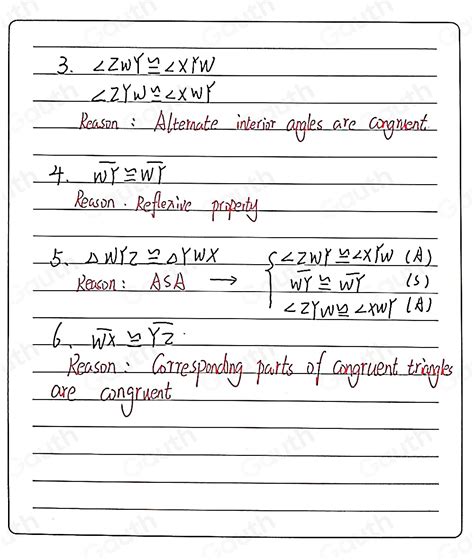 3. ∠ZWY ≅ ∠XYW
∠ZYW ≅ ∠XWY
Reason : Alternate interior angles are congruent
4. WY ≅ WY
Reason . Reflexive property
5. △WYZ ≅ △YWX
Reason : ASA → { ∠ZWY ≅ ∠XYW (A)
WY ≅ WY (S)
∠ZYW ≅ ∠XWY (A)
6. WX ≅ YZ.
Reason : Corresponding parts of congruent triangles
are congruent
Gauth